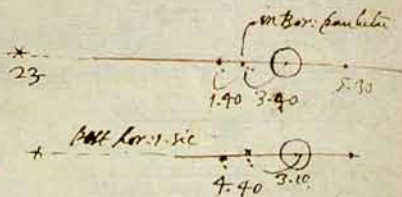 in Bor: paululu
23 1.40 3.40 5.30
Post hor: 1. sic
4.40 3.10